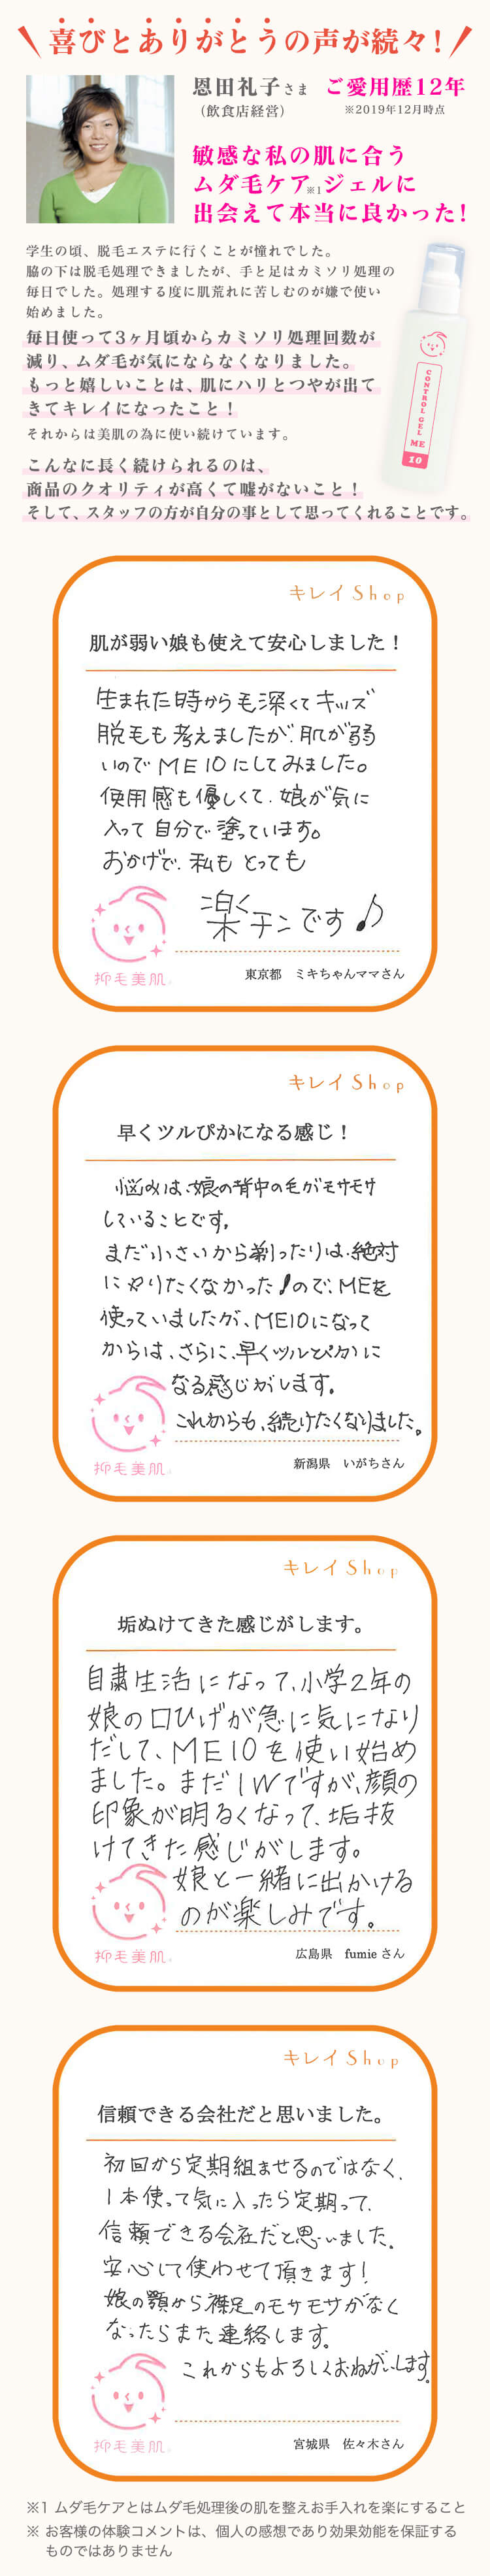 喜びとありがとうの声が続々!
恩田礼子さま ご愛用歴12年
(飲食店経営) ※2019年12月時点
敏感な私の肌に合う
ムダ毛ケア※1ジェルに
出会えて本当に良かった!
学生の頃、脱毛エステに行くことが憧れでした。
脇の下は脱毛処理できましたが、手と足はカミソリ処理の
毎日でした。処理する度に肌荒れに苦しむのが嫌で使い
始めました。
毎日使って3ヶ月頃からカミソリ処理回数が
減り、ムダ毛が気にならなくなりました。
もっと嬉しいことは、肌にハリとつやが出て
きてキレイになったこと!
それからは美肌の為に使い続けています。
こんなに長く続けられるのは、
商品のクオリティが高くて嘘がないこと!
そして、スタッフの方が自分の事として思ってくれることです。
CONTROL GEL
ME
10
キレイShop
肌が弱い娘も使えて安心しました!
生まれた時から毛深くてキッズ
脱毛も考えましたが、肌が弱
いのでME10にしてみました。
使用感も優しくて、娘が気に
入って自分で塗っています。
おかげで、私もとっても
楽チンです♪
抑毛美肌
東京都 ミキちゃんママさん
キレイShop
早くツルぴかになる感じ!
悩みは、娘の背中の毛がモサモサ
していることです。
まだ小さいから剃ったりは、絶対
にやりたくなかった!ので、MEを
使っていましたが、ME10になって
からは、さらに、早くツルとぴかに
なる感じがします。
これからも、続けたくなりました。
抑毛美肌
新潟県 いがちさん
キレイShop
垢ぬけてきた感じがします。
自粛生活になって、小学2年の
娘の口ひげが急に気になり
だして、ME10を使い始め
ました。まだ1Wですが、顔の
印象が明るくなって、垢抜
けてきた感じがします。
娘と一緒に出かける
のが楽しみです。
抑毛美肌
広島県 fumieさん
キレイShop
信頼できる会社だと思いました。
初回から定期組ませるのではなく、
1本使って気に入ったら定期って、
信頼できる会社だと思いました。
安心して使わせて頂きます!
娘の顎から襟足のモサモサがなく
なったらまた連絡します。
これからもよろしくおねがいします。
抑毛美肌
宮城県 佐々木さん
※1 ムダ毛ケアとはムダ毛処理後の肌を整えお手入れを楽にすること
※ お客様の体験コメントは、個人の感想であり効果効能を保証する
ものではありません